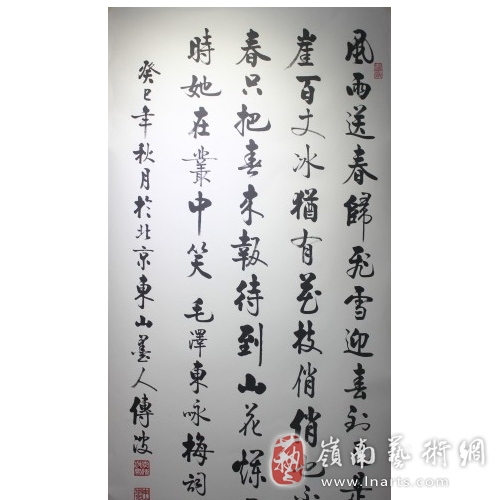 風雨送春歸飛雪迎春到已是
崖百丈冰猶有花枝俏俏也不
春只把春來報待到山花爛
時她在叢中笑 毛澤東咏梅詞
癸巳年秋月於北京東山墨人傳波
嶺南藝術網
www.lnarts.com